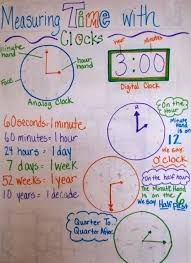 Measuring Time with
Clocks
minute
hand
hour
hand
Face
Analog Clock
hour
minutes
3:00
Digital Clock
60 seconds = 1 minute
60 minutes = 1 hour
24 hours = 1 day
7 days = 1 week
52 weeks = 1 year
10 years = 1 decade
On the
hour
minute
Hand
is on
12
we say
o'clock
On the half hour
The Minute Hand
is on the
We say Half Past
Quarter To
Quarter After